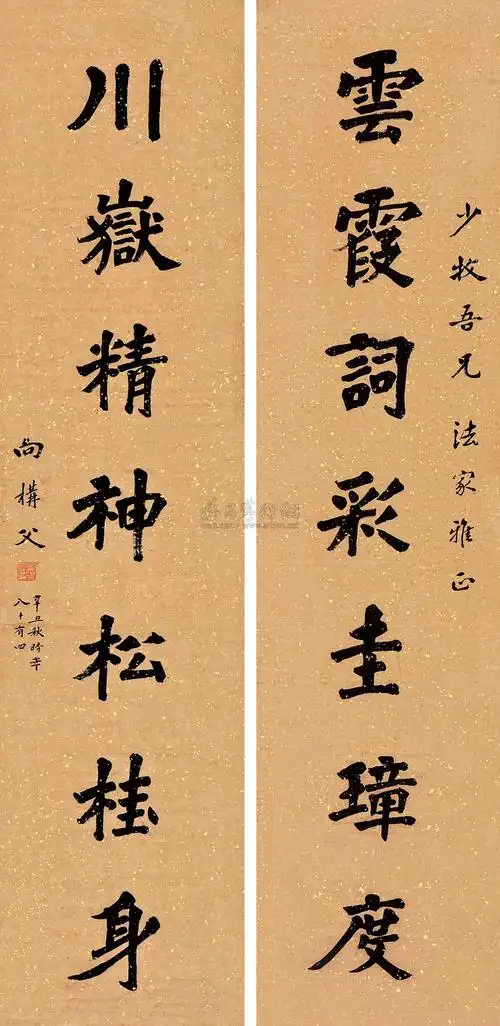 少牧吾兄法家雅正
雲霞詞彩圭璋度
川嶽精神松桂身
尚構父
辛丑秋時年
八十有四